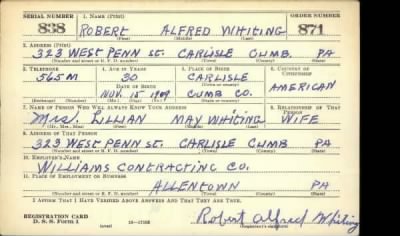 SERIAL NUMBER 1. NAME (Print) ORDER NUMBER
838 ROBERT ALFRED WHITING 871
(First) (Middle) (Last)
2. ADDRESS (Print)
323 WEST PENN St. CARLISLE CUMB. PA
(Number and street or R. F. D. number) (Town) (County) (State)
3. TELEPHONE 4. AGE IN YEARS 5. PLACE OF BIRTH 6. COUNTRY OF CITIZENSHIP
565M 30 CARLISLE
DATE OF BIRTH (Town or county) AMERICAN
NOV. 15 1909 CUMB CO.
(Exchange) (Number) (Mo.) (Day) (Yr.) (State or country)
7. NAME OF PERSON WHO WILL ALWAYS KNOW YOUR ADDRESS 8. RELATIONSHIP OF THAT PERSON
Mrs. LILLIAN MAY WHITING WIFE
(Mr., Mrs., Miss) (First) (Middle) (Last)
9. ADDRESS OF THAT PERSON
323 WEST PENN St. CARLISLE CUMB. PA
(Number and street or R. F. D. number) (Town) (County) (State)
10. EMPLOYER'S NAME
WILLIAMS CONTRACTING CO.
11. PLACE OF EMPLOYMENT OR BUSINESS
ALLENTOWN PA
(Number and street or R. F. D. number) (Town) (County) (State)
I AFFIRM THAT I HAVE VERIFIED ABOVE ANSWERS AND THAT THEY ARE TRUE.
REGISTRATION CARD
D. S. S. Form 1 (over) Robert Alfred Whiting